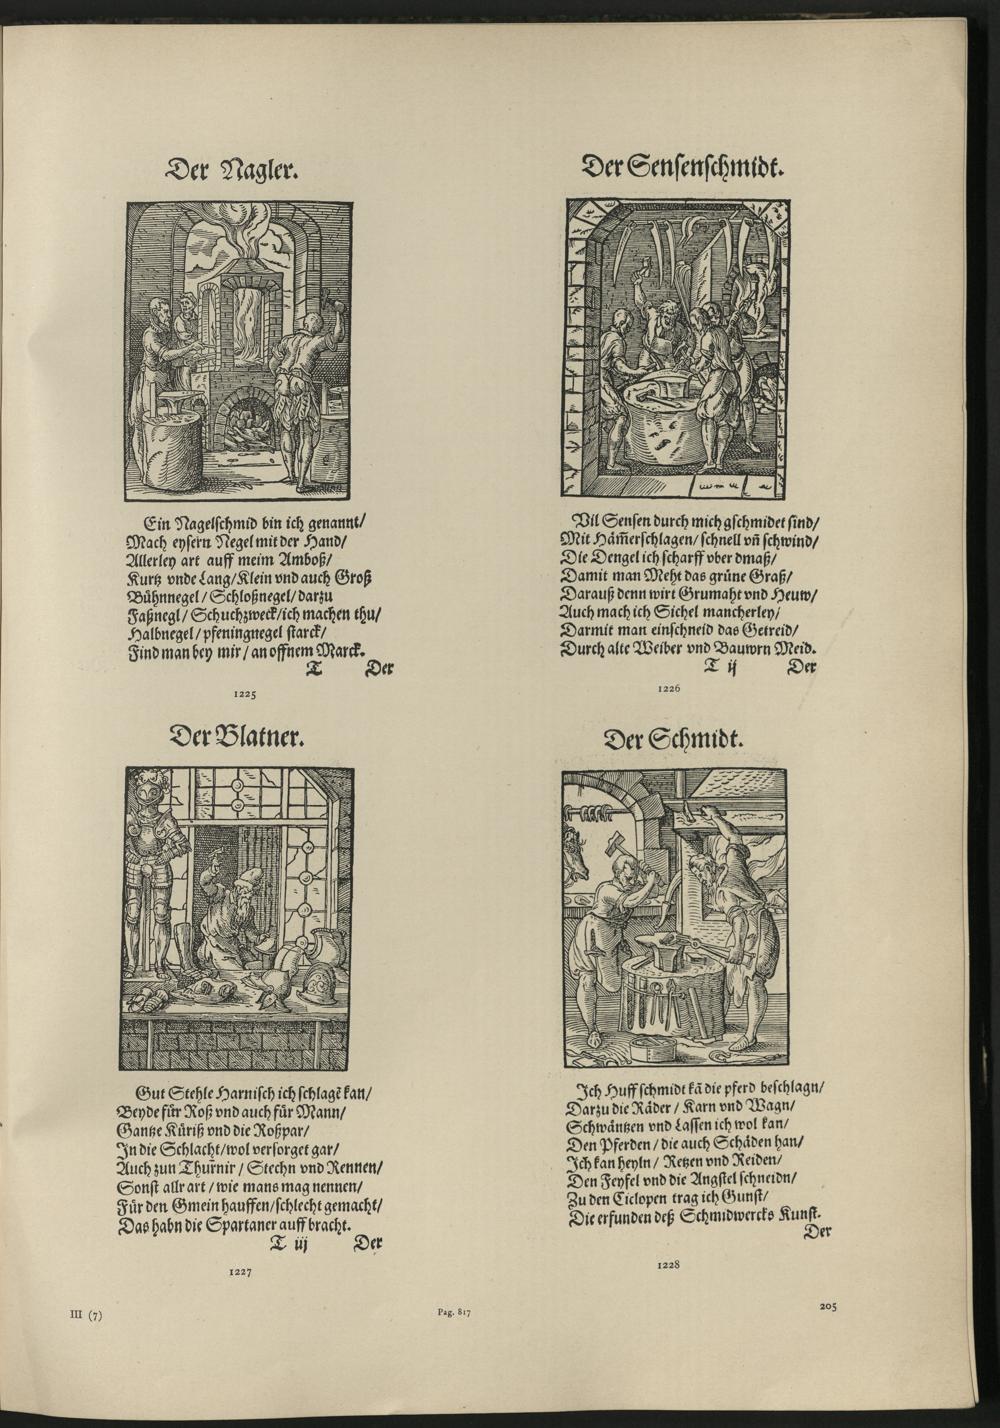 Der Nagler.
Ein Nagelschmid bin ich genannt/
Mach eysern Negel mit der Hand/
Allerley art auff meim Amboß/
Kurtz vnde Lang/Klein vnd auch Groß
Bühnnegel/Schloßnegel/darzu
Faßnegl/Schuchzweck/ich machen thu/
Halbnegel/pfeningnegel starck/
Find man bey mir/an offnem Marck.
T Der
1225
Der Sensenschmidt.
Vil Sensen durch mich gschmidet sind/
Mit Häm̃erschlagen/schnell vñ schwind/
Die Dengel ich scharff vber dmaß/
Damit man Meht das grüne Graß/
Darauß denn wirt Grumaht vnd Heuw/
Auch mach ich Sichel mancherley/
Darmit man einschneid das Getreid/
Durch alte Weiber vnd Bauwrn Meid.
T ij Der
1226
Der Blatner.
Gut Stehle Harnisch ich schlagẽ kan/
Beyde für Roß vnd auch für Mann/
Gantze Küriß vnd die Roßpar/
In die Schlacht/wol versorget gar/
Auch zun Thurnir/Stechn vnd Rennen/
Sonst allr art/wie mans mag nennen/
Für den Gmein hauffen/schlecht gemacht/
Das habn die Spartaner auff bracht.
T iij Der
1227
Der Schmidt.
Ich Huffschmidt kã die pferd beschlagn/
Darzu die Räder/Karn vnd Wagn/
Schwäntzen vnd Lassen ich wol kan/
Den Pferden/die auch Schäden han/
Ich kan heyln/Retzen vnd Reiden/
Den Feyfel vnd die Angstel schneidn/
Zu den Ciclopen trag ich Gunst/
Die erfunden deß Schmidwercks Kunst.
Der
1228
III (7) Pag. 817 205